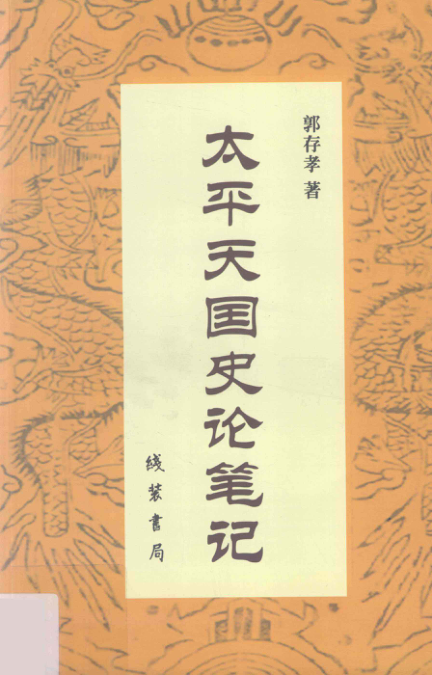 郭存孝 著
太平天国史论笔记
线装书局